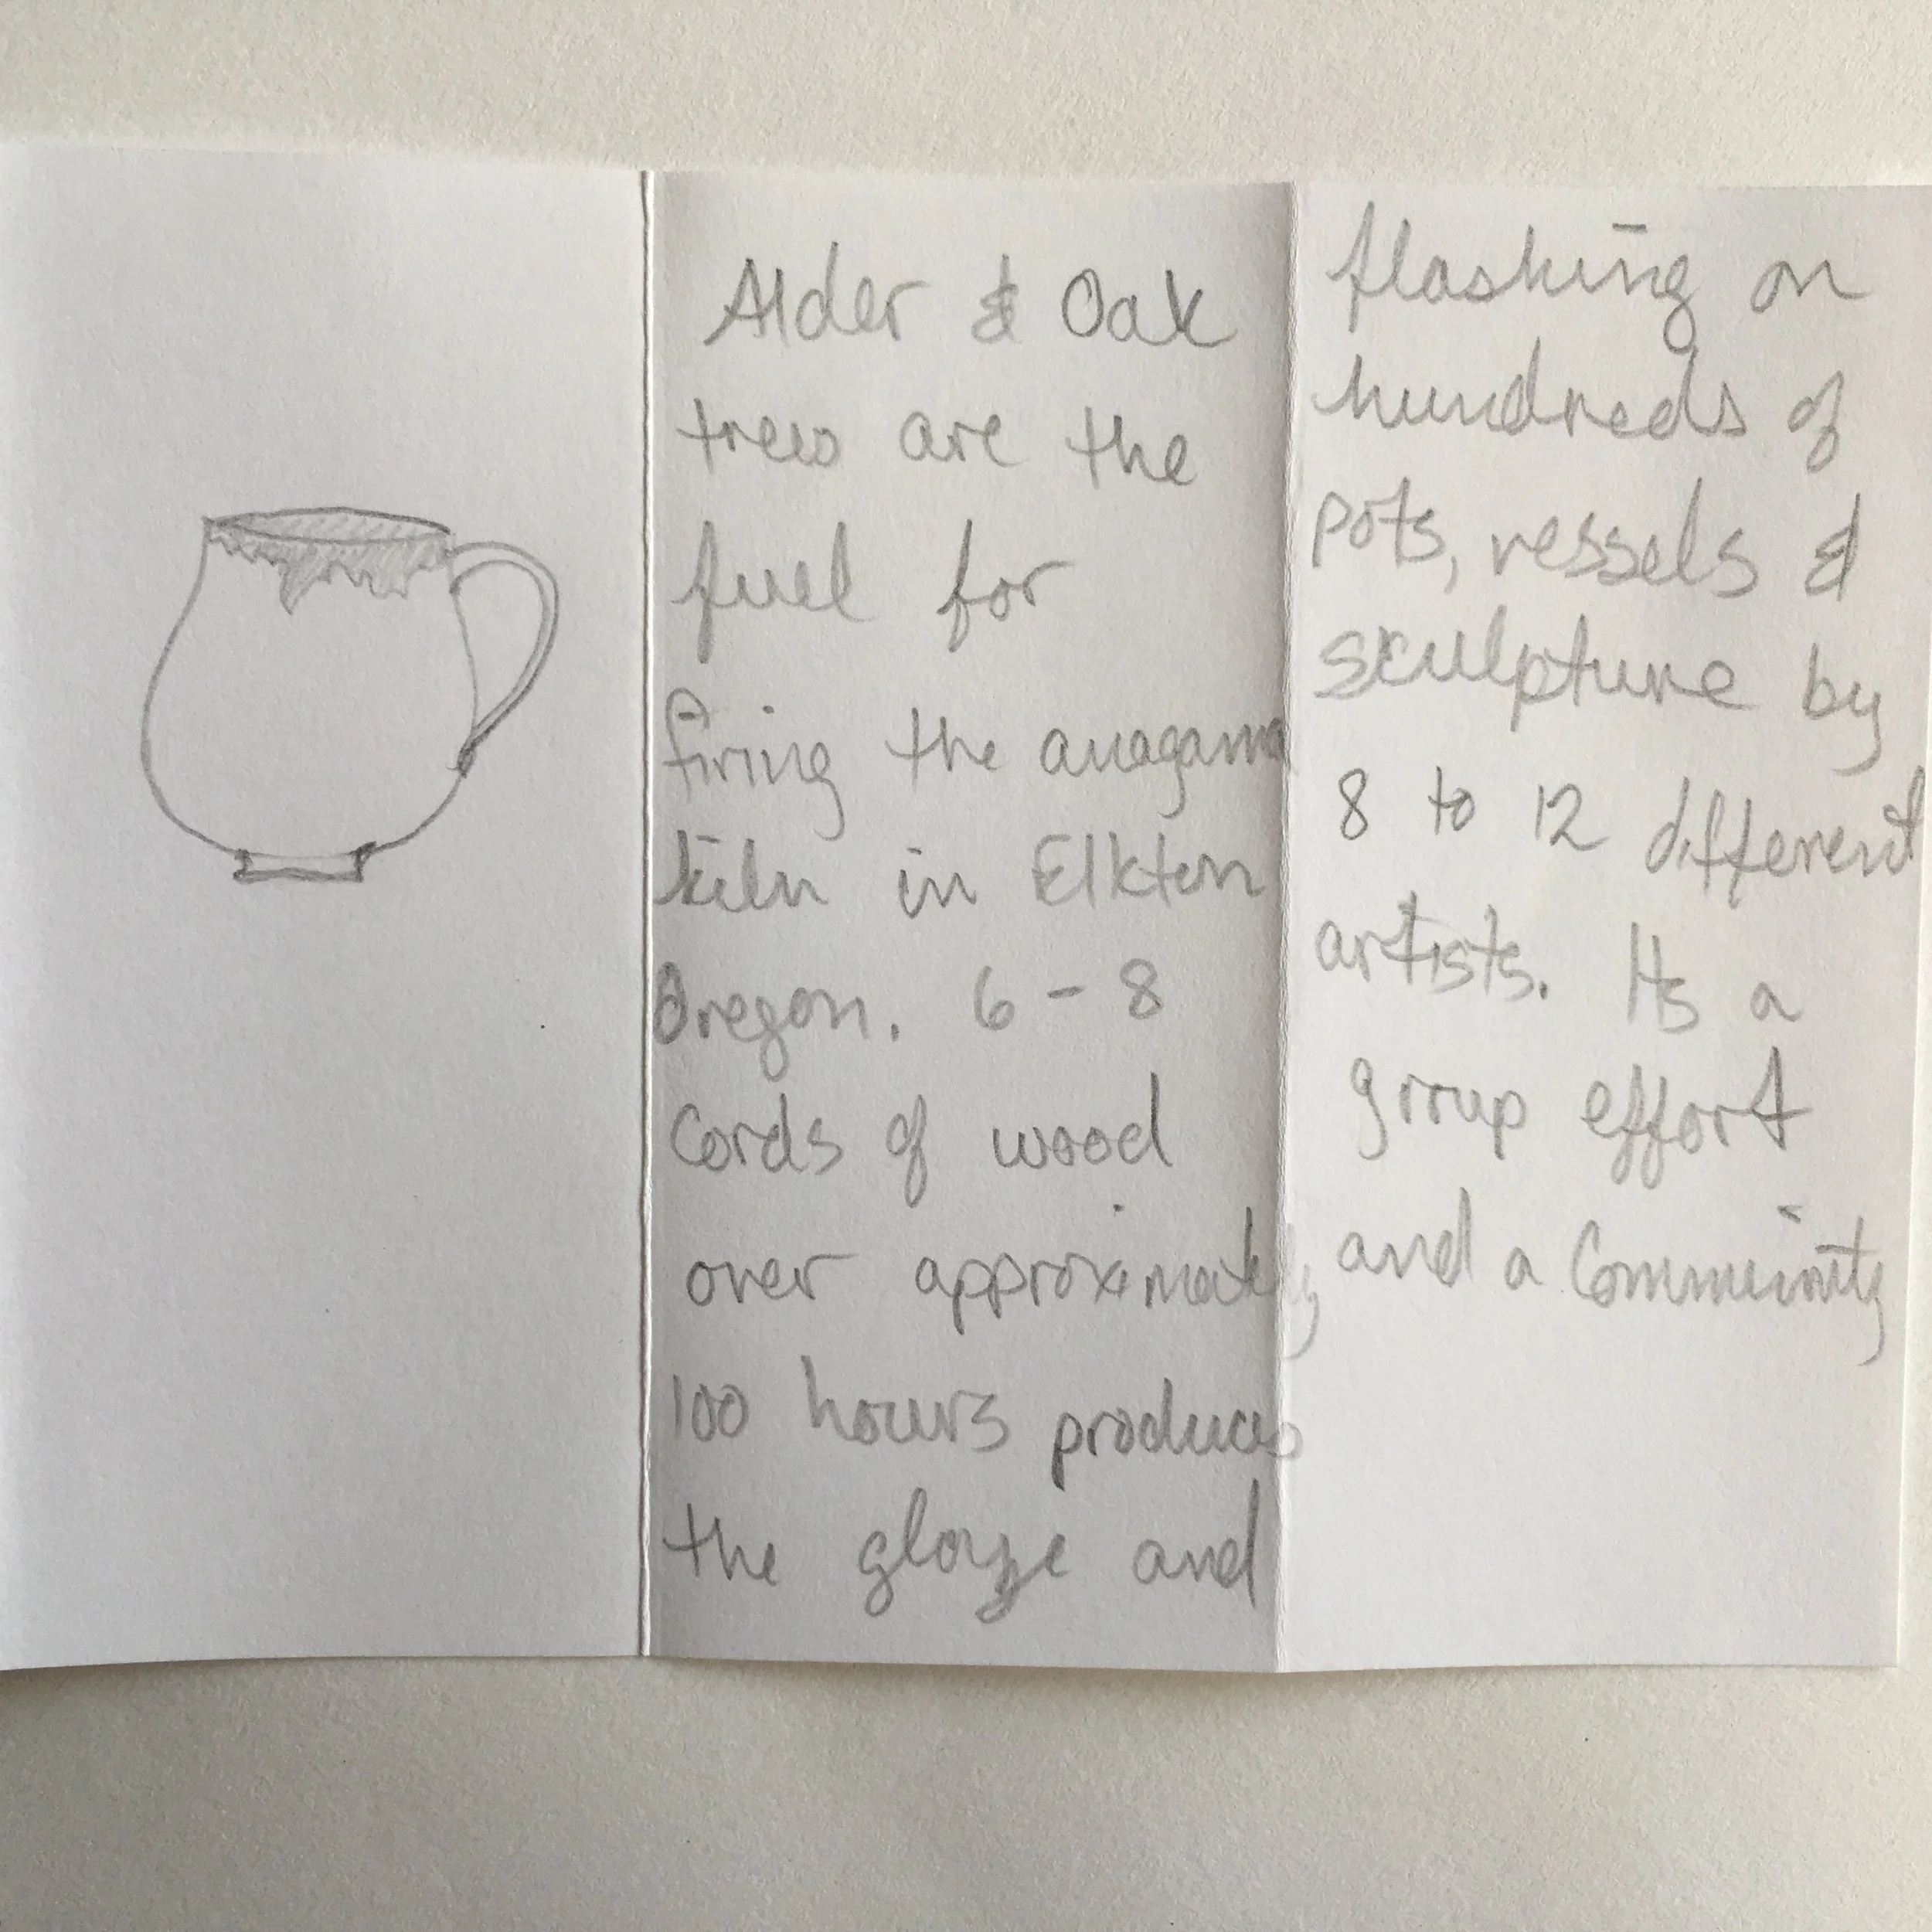 Alder & Oak
trees are the
fuel for
firing the anagama
kiln in Elkton
Oregon. 6 - 8
Cords of wood
over approximately
100 hours produces
the glaze and
flashing on
hundreds of
pots, vessels &
sculpture by
8 to 12 different
artists. Its a
group effort
and a Community